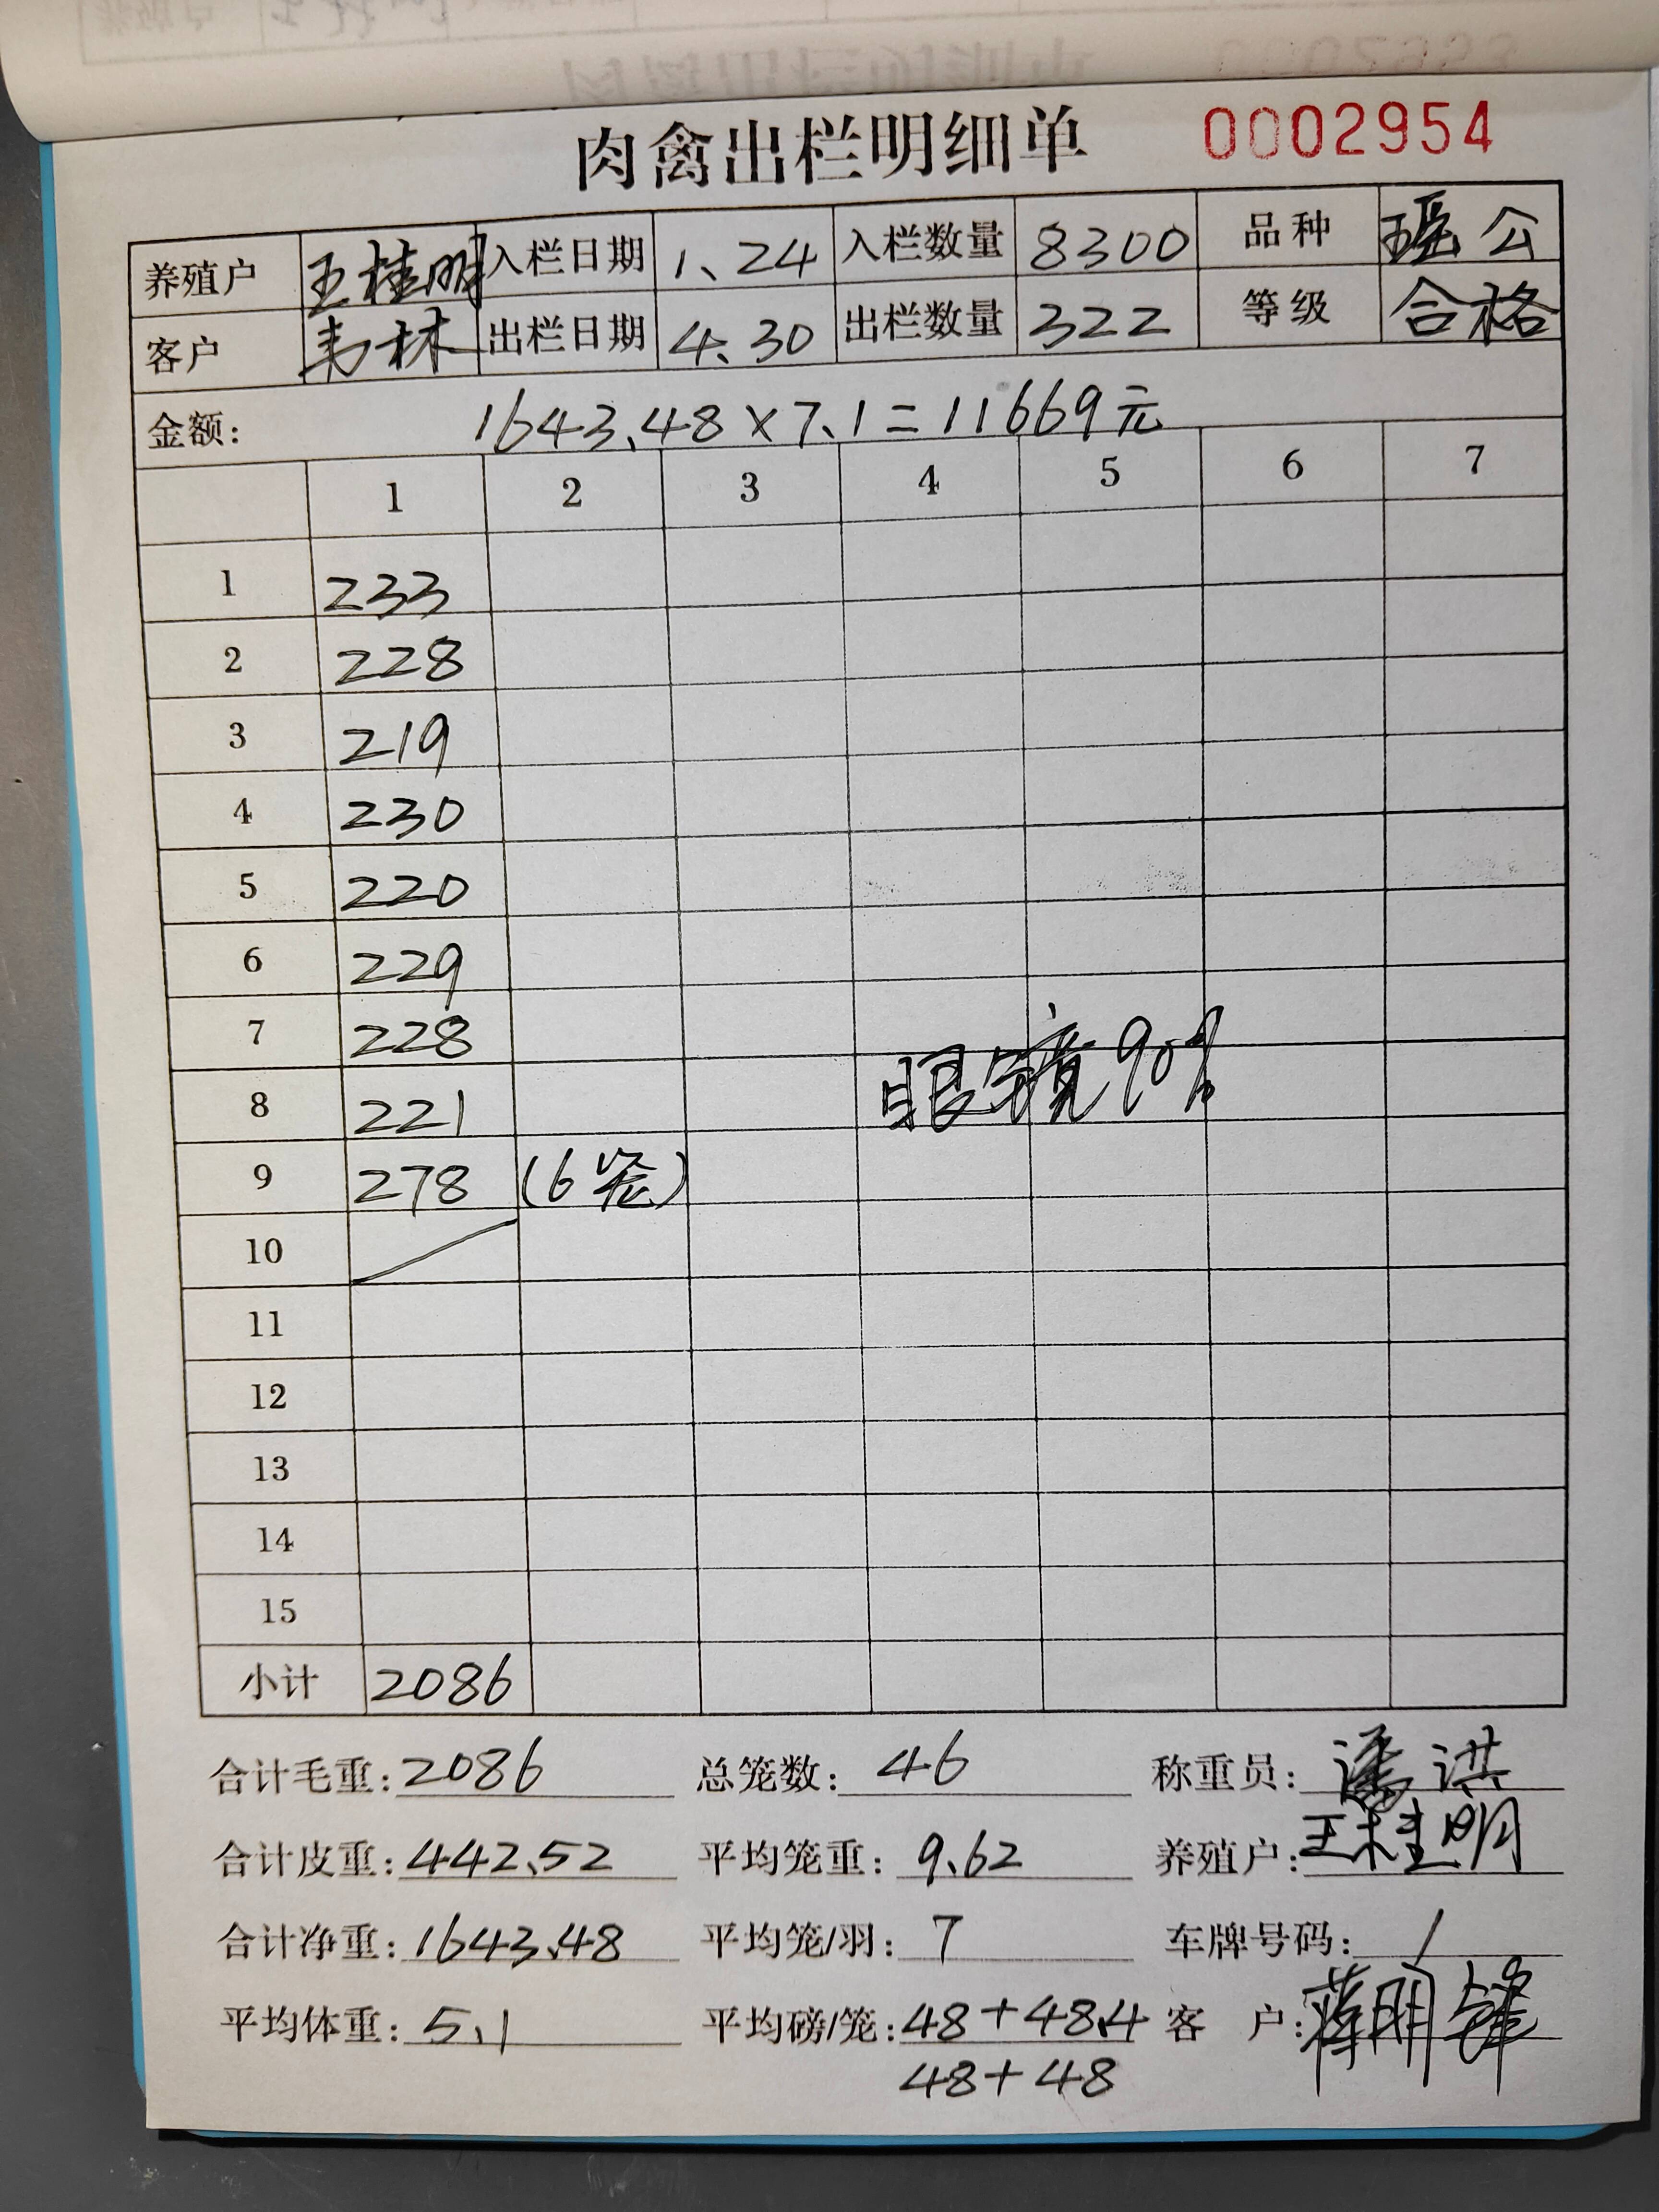 肉禽出栏明细单 0002954
养殖户 王桂明 入栏日期 1、24 入栏数量 8300 品种 瑶公
客户 韦林 出栏日期 4、30 出栏数量 322 等级 合格
金额: 1643、48×7、1=11669元
1 2 3 4 5 6 7
1 233
2 228
3 219
4 230
5 220
6 229
7 228
8 221 眼镜90%
9 278 (6笼)
10
11
12
13
14
15
小计 2086
合计毛重: 2086 总笼数: 46 称重员: 潘洪
合计皮重: 442、52 平均笼重: 9、62 养殖户: 王桂明
合计净重: 1643、48 平均笼/羽: 7 车牌号码: /
平均体重: 5、1 平均磅/笼: 48+48、4 客 户: 蒋明锋
48+48